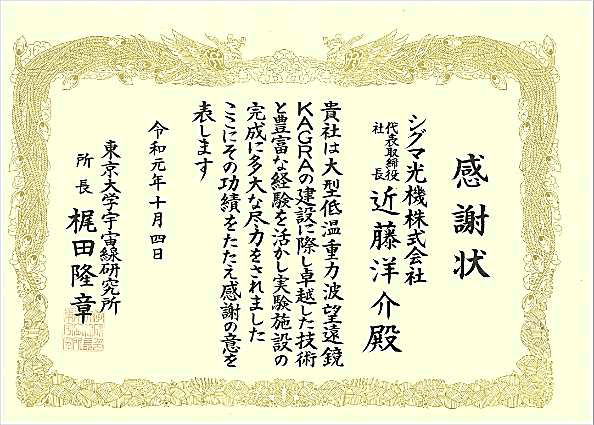 感謝状
シグマ光機株式会社
代表取締役
社長
近藤洋介殿
貴社は大型低温重力波望遠鏡
KAGRAの建設に際し卓越した技術
と豊富な経験を活かし実験施設の
完成に多大な尽力をされました
ここにその功績をたたえ感謝の意を
表します
令和元年十月四日
東京大学宇宙線研究所
所長 梶田隆章